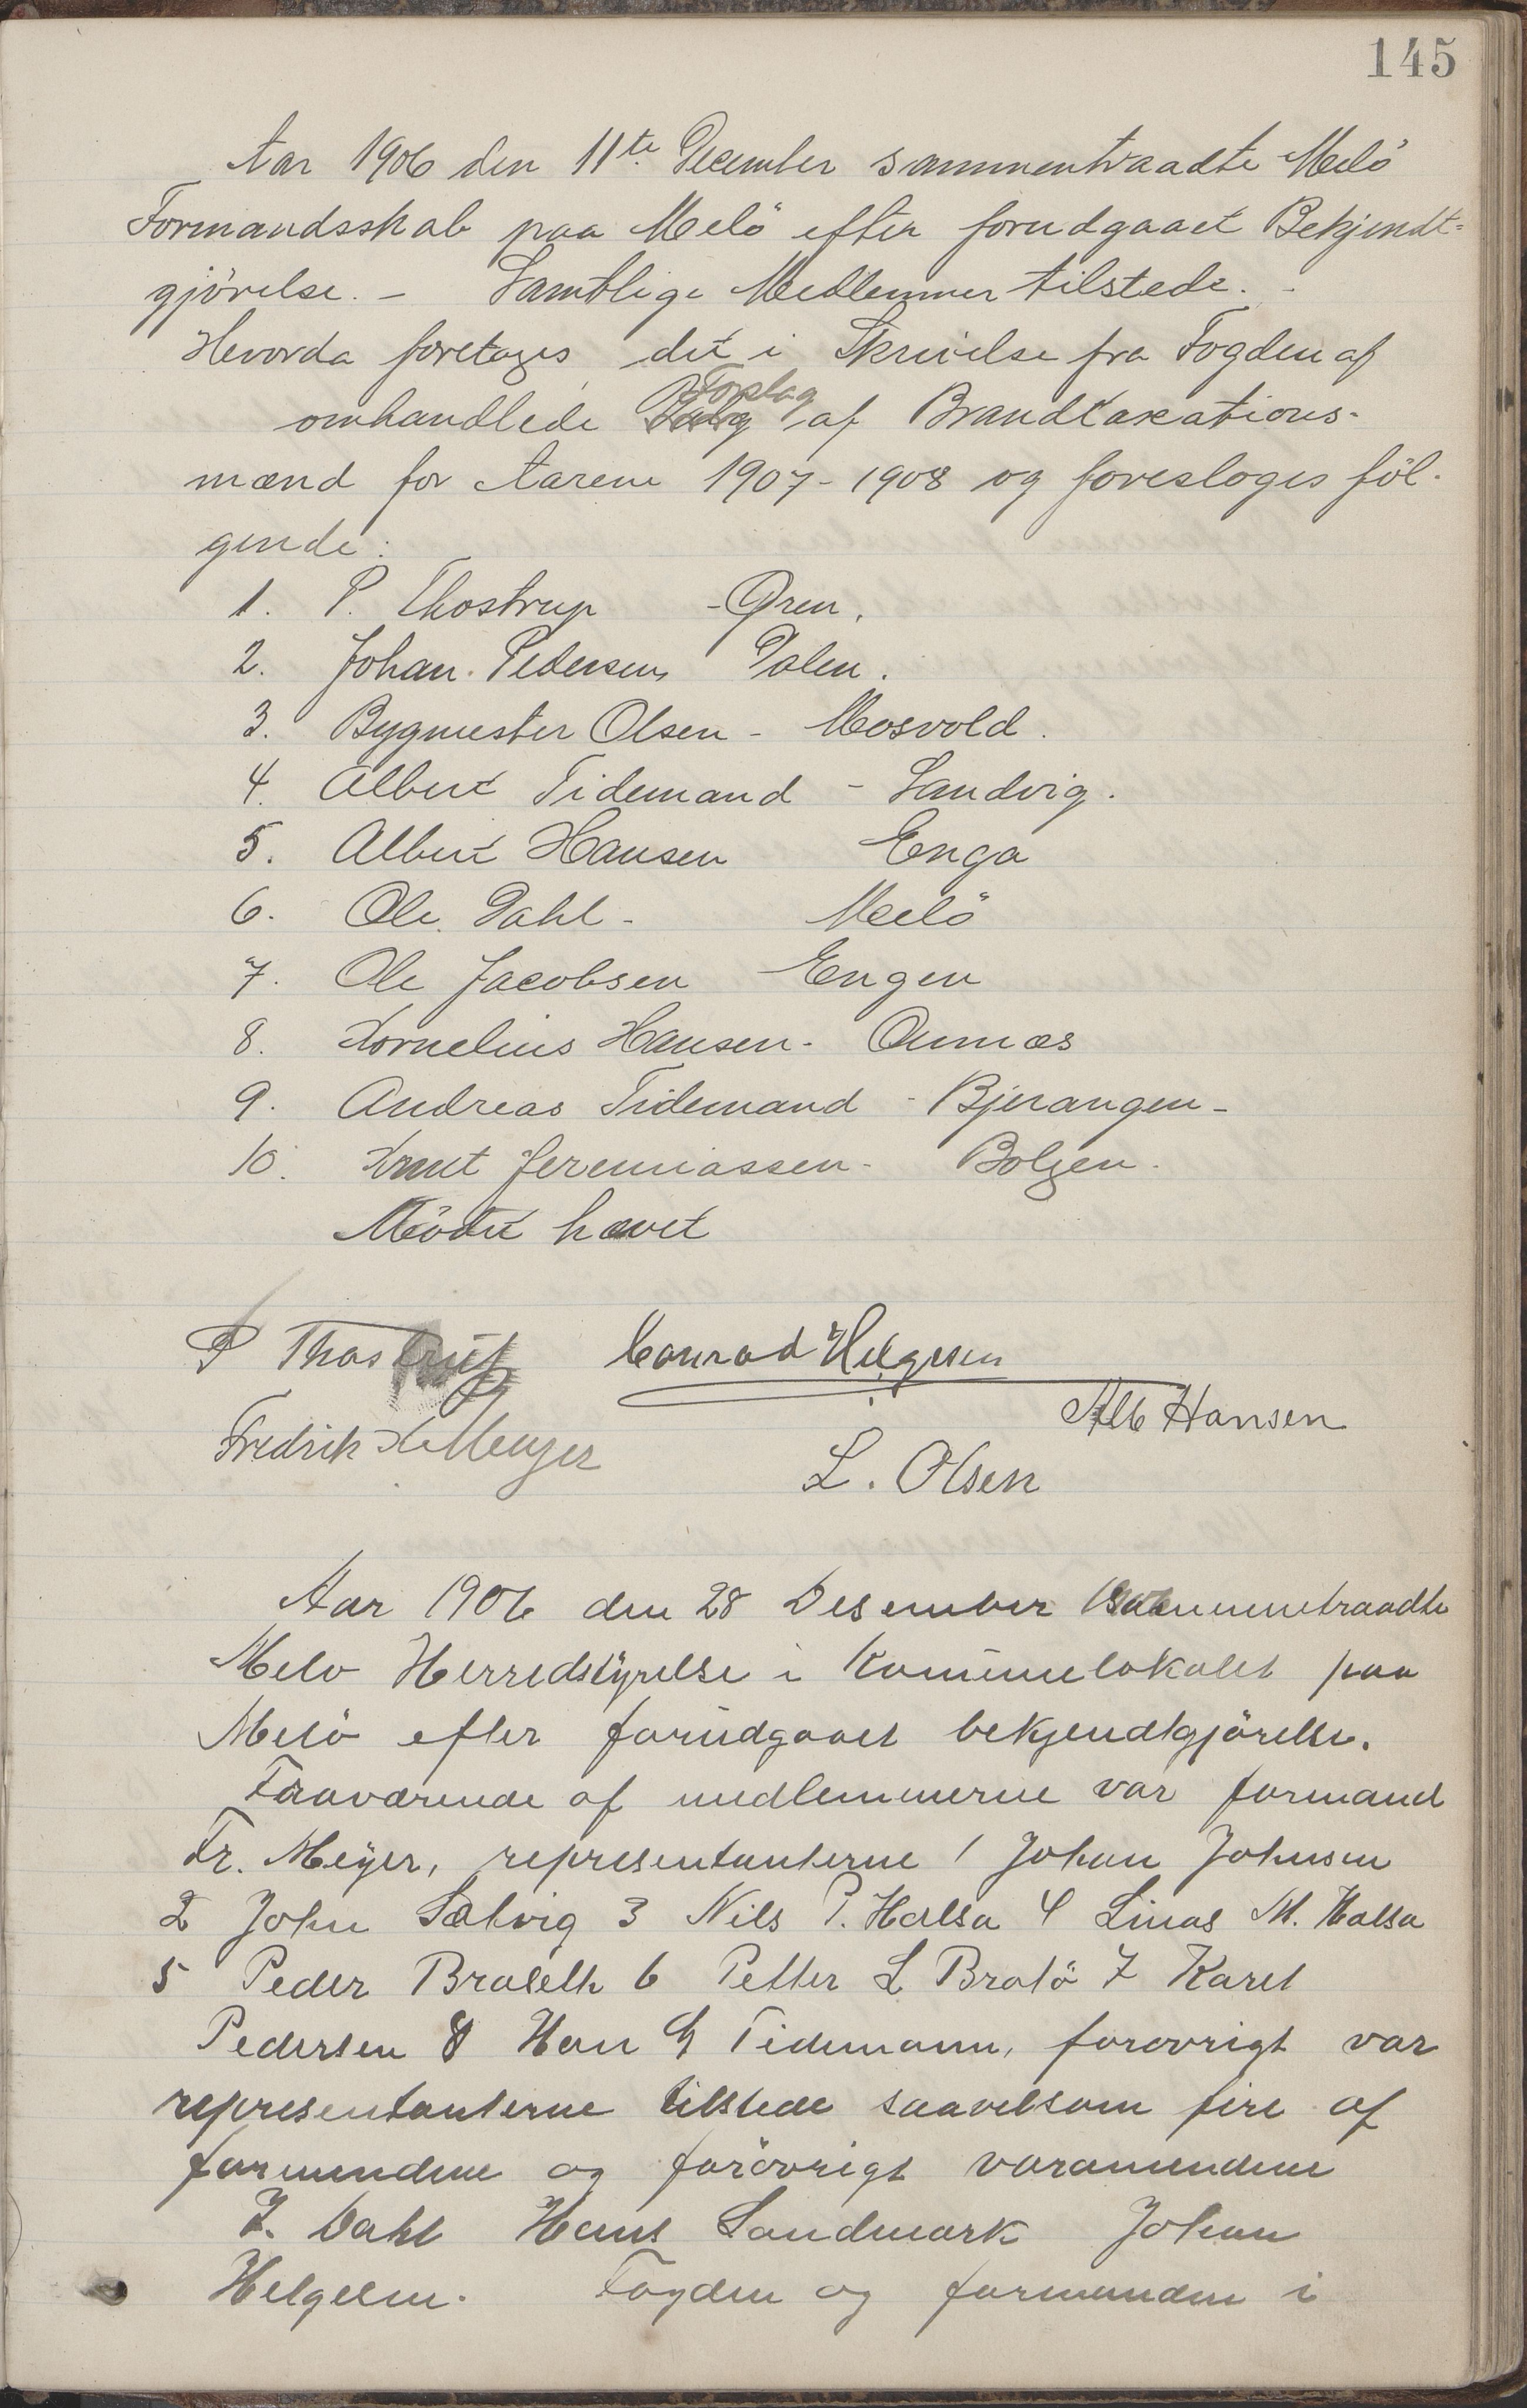 145
Aar 1906 den 11te December sammentraadte Melö
Formandsskab paa Melö efter forudgaaet Bekjendt=
gjörelse. - Samtlige Medlemmer tilstede. -
Hvorda foretoges det i Skrivelse fra Fogden af
omhandlede Valg Forslag af Brandtaxations-
mænd for Aarene 1907-1908 og foresloges föl-
gende:
1. P. Thostrup - Øren.
2. Johan Pedersen Dalen.
3. Bygmester Olsen - Mosvold.
4. Albert Tidemand - Sandvig.
5. Albert Hansen Enga
6. Ole Dahl - Melö
7. Ole Jacobsen Engen
8. Kornelius Hansen - Ornæs
9. Andreas Tidemand - Bjerangen -
10. Knut Jeremiassen - Bolgen.
Mödet hævet
P Thostrup Conrad Helgesen
Alb Hansen
Fredrik Meyer
L. Olsen
Aar 1906 den 28 Desember sammentraadte
Melö Herredstyrelse i Komunelokalet paa
Melö efter forudgaaet bekjendtgjörelse.
Fraværende af medlemmerne var formand
Fr. Meyer, representanterne 1 Johan Johnsen
2 John Selvig 3 Nils P. Halsa 4 Linas M. Halsa
5 Peder Braset 6 Petter L Bratö 7 Karel
Pedersen 8 Han G Tidemann, forovrigt var
representanterne tilstede saavelsom fire af
formendene og forövrigt varamendene
I. Dahl Hans Sandmark Johan
Helgesen. Fogden og formanden i